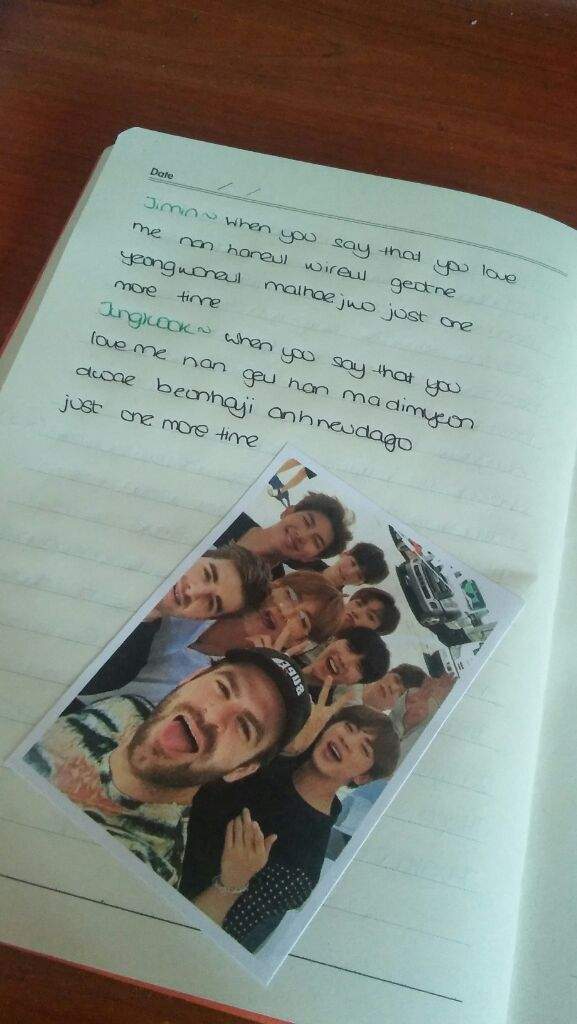 Date / /
Jimin~ when you say that you love
me nan haneul wireul geotne
yeongwoneul malhaejwo just one
more time
Jungkook~ when you say that you
love me nan geu han madimyeon
dwae beonhaji anhneundago
just one more time